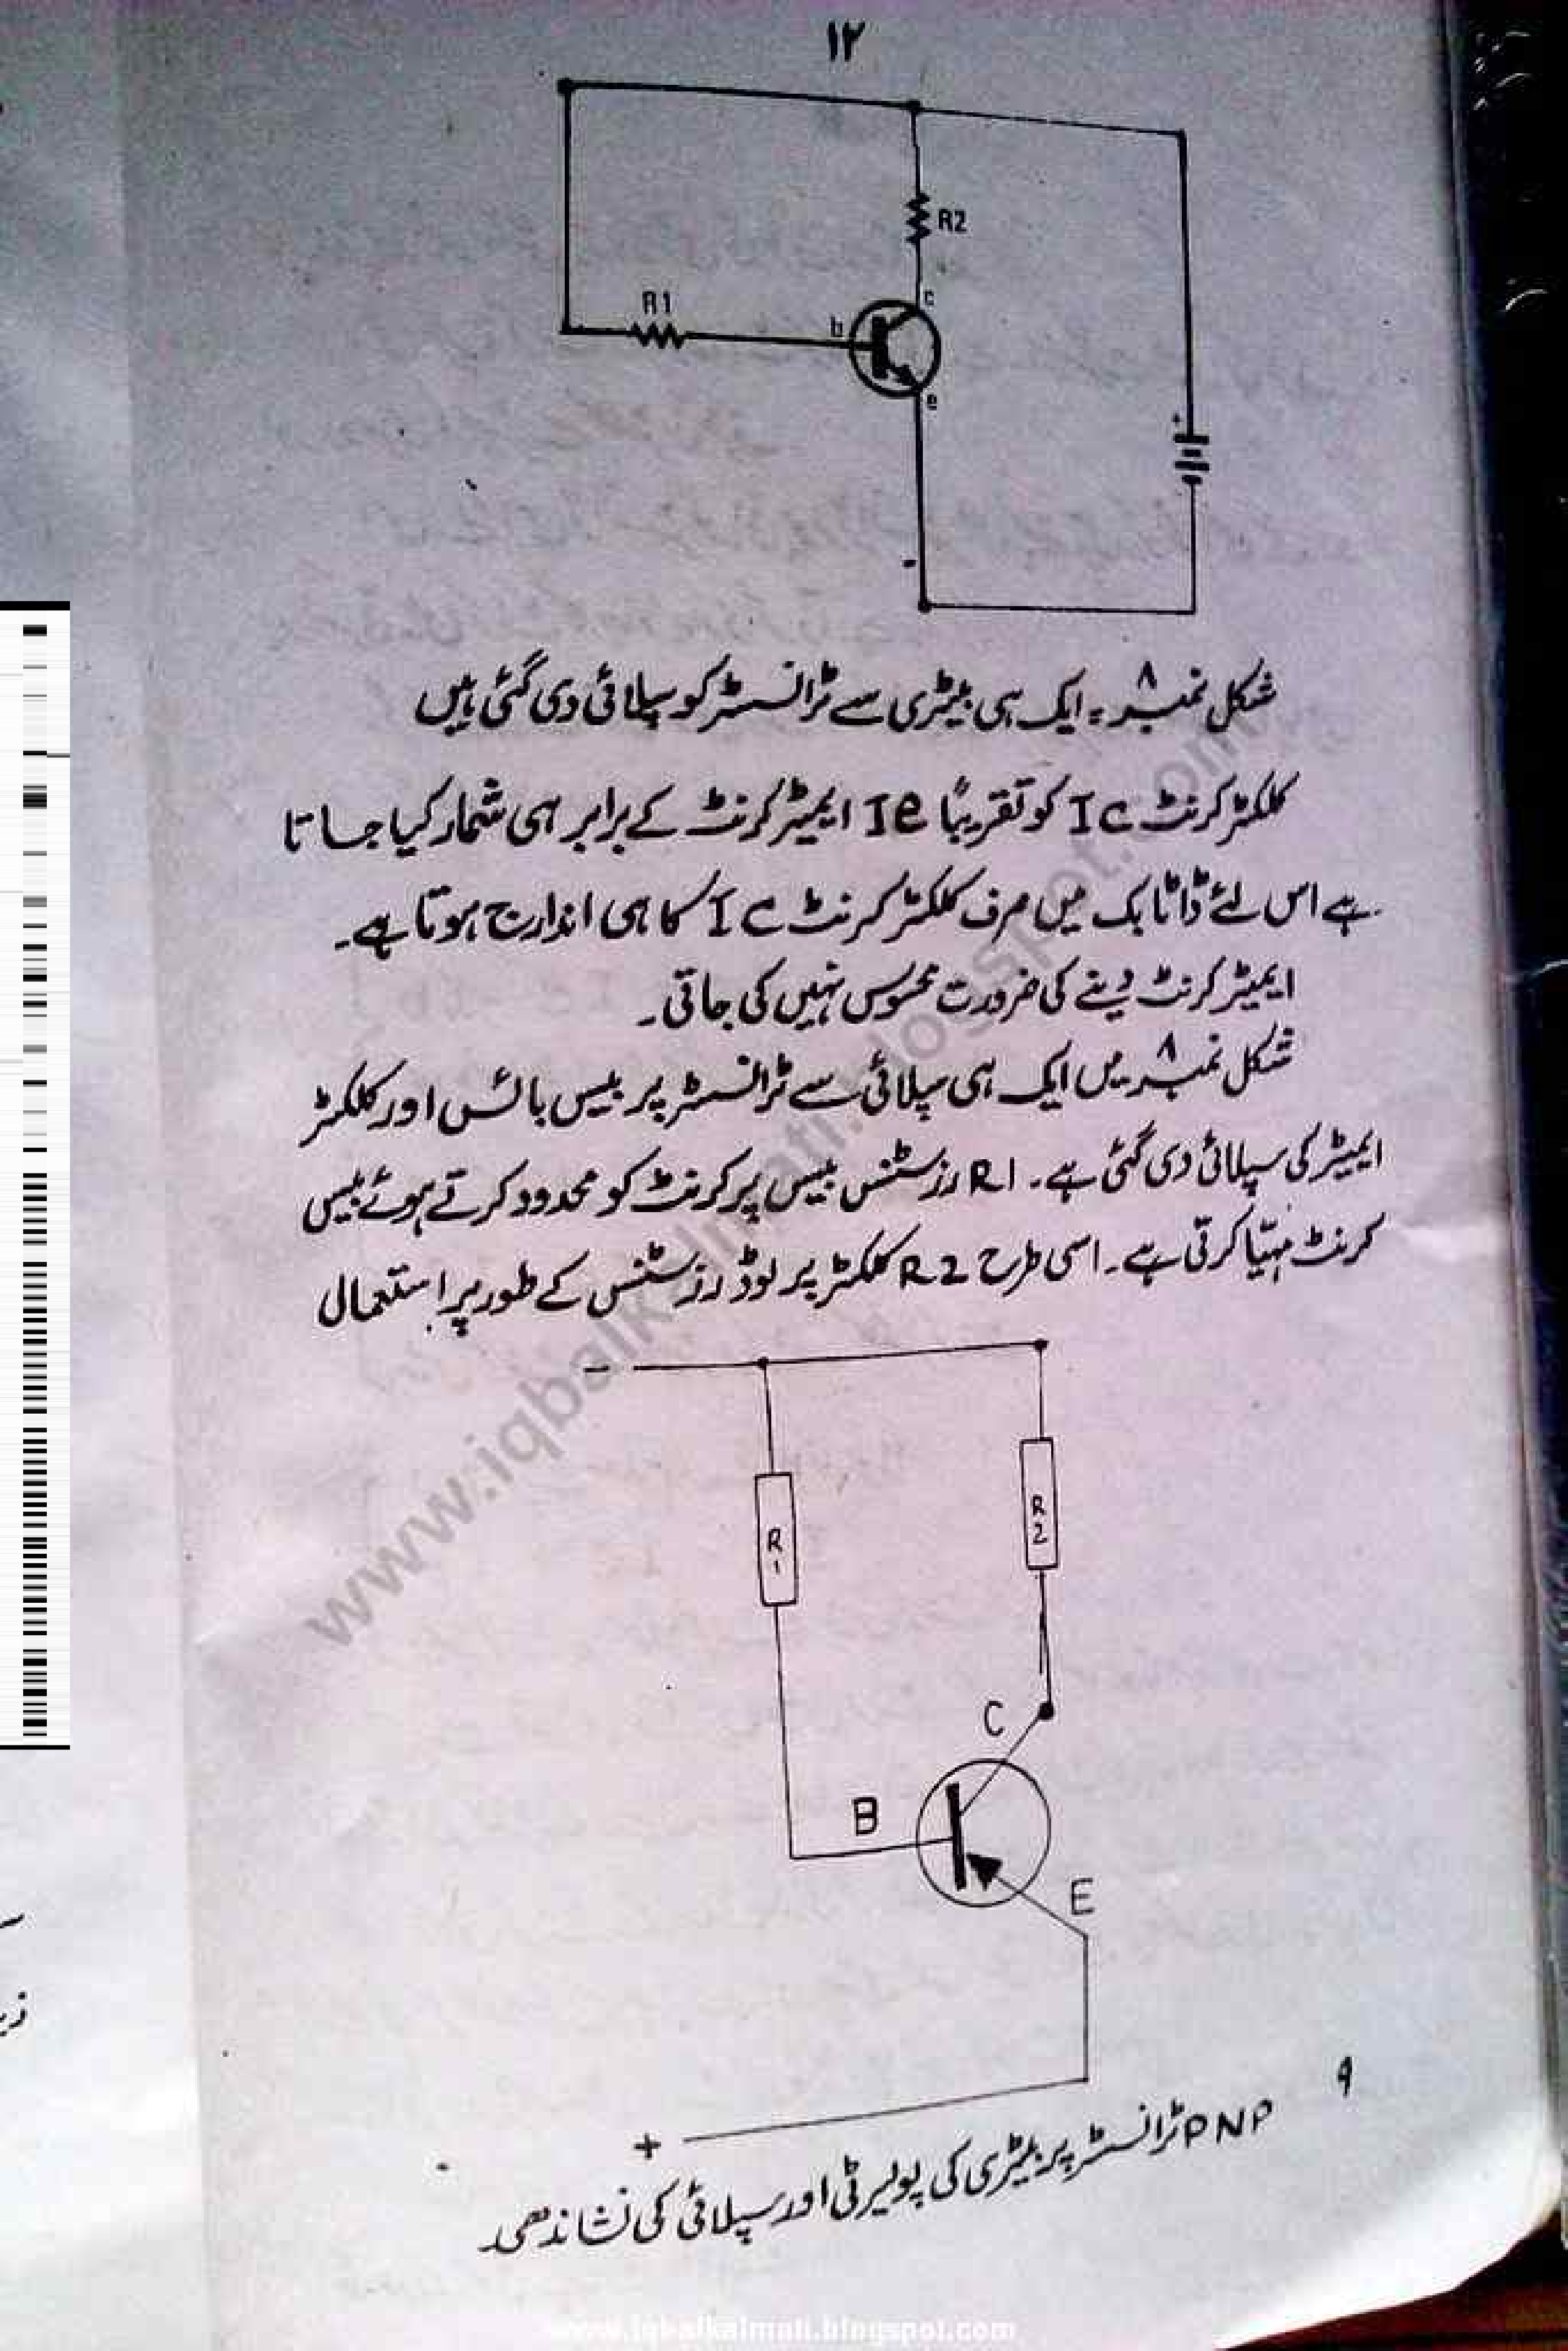 ۱۲
R2
c
R1
b
e
+
-
شکل نمبر ۸ = ایک ہی بیٹری سے ٹرانسسٹر کو سپلائی دی گئی ہیں
کلکٹر کرنٹ Ic کو تقریباً Ie ایمیٹر کرنٹ کے برابر ہی شمار کیا جاتا
ہے اس لئے ڈاٹا بک میں صرف کلکٹر کرنٹ Ic کا ہی اندارج ہوتا ہے۔
ایمیٹر کرنٹ دینے کی ضرورت محسوس نہیں کی جاتی۔
شکل نمبر ۸ میں ایک ہی سپلائی سے ٹرانسسٹر پر بیس بائس اور کلکٹر
ایمیٹر کی سپلائی دی گئی ہے۔ R1 رزسٹنس بیس پر کرنٹ کو محدود کرتے ہوئے بیس
کرنٹ مہیّا کرتی ہے۔ اسی طرح R2 کلکٹر پر لوڈ رزسٹنس کے طور پر استعمال
-
R1
R2
C
B
E
+
۹
PNP ٹرانسسٹر پر بیٹری کی پولیرٹی اور سپلائی کی نشاندھی۔
www.iqbalkalmati.blogspot.com
www.iqbalkalmati.blogspot.com